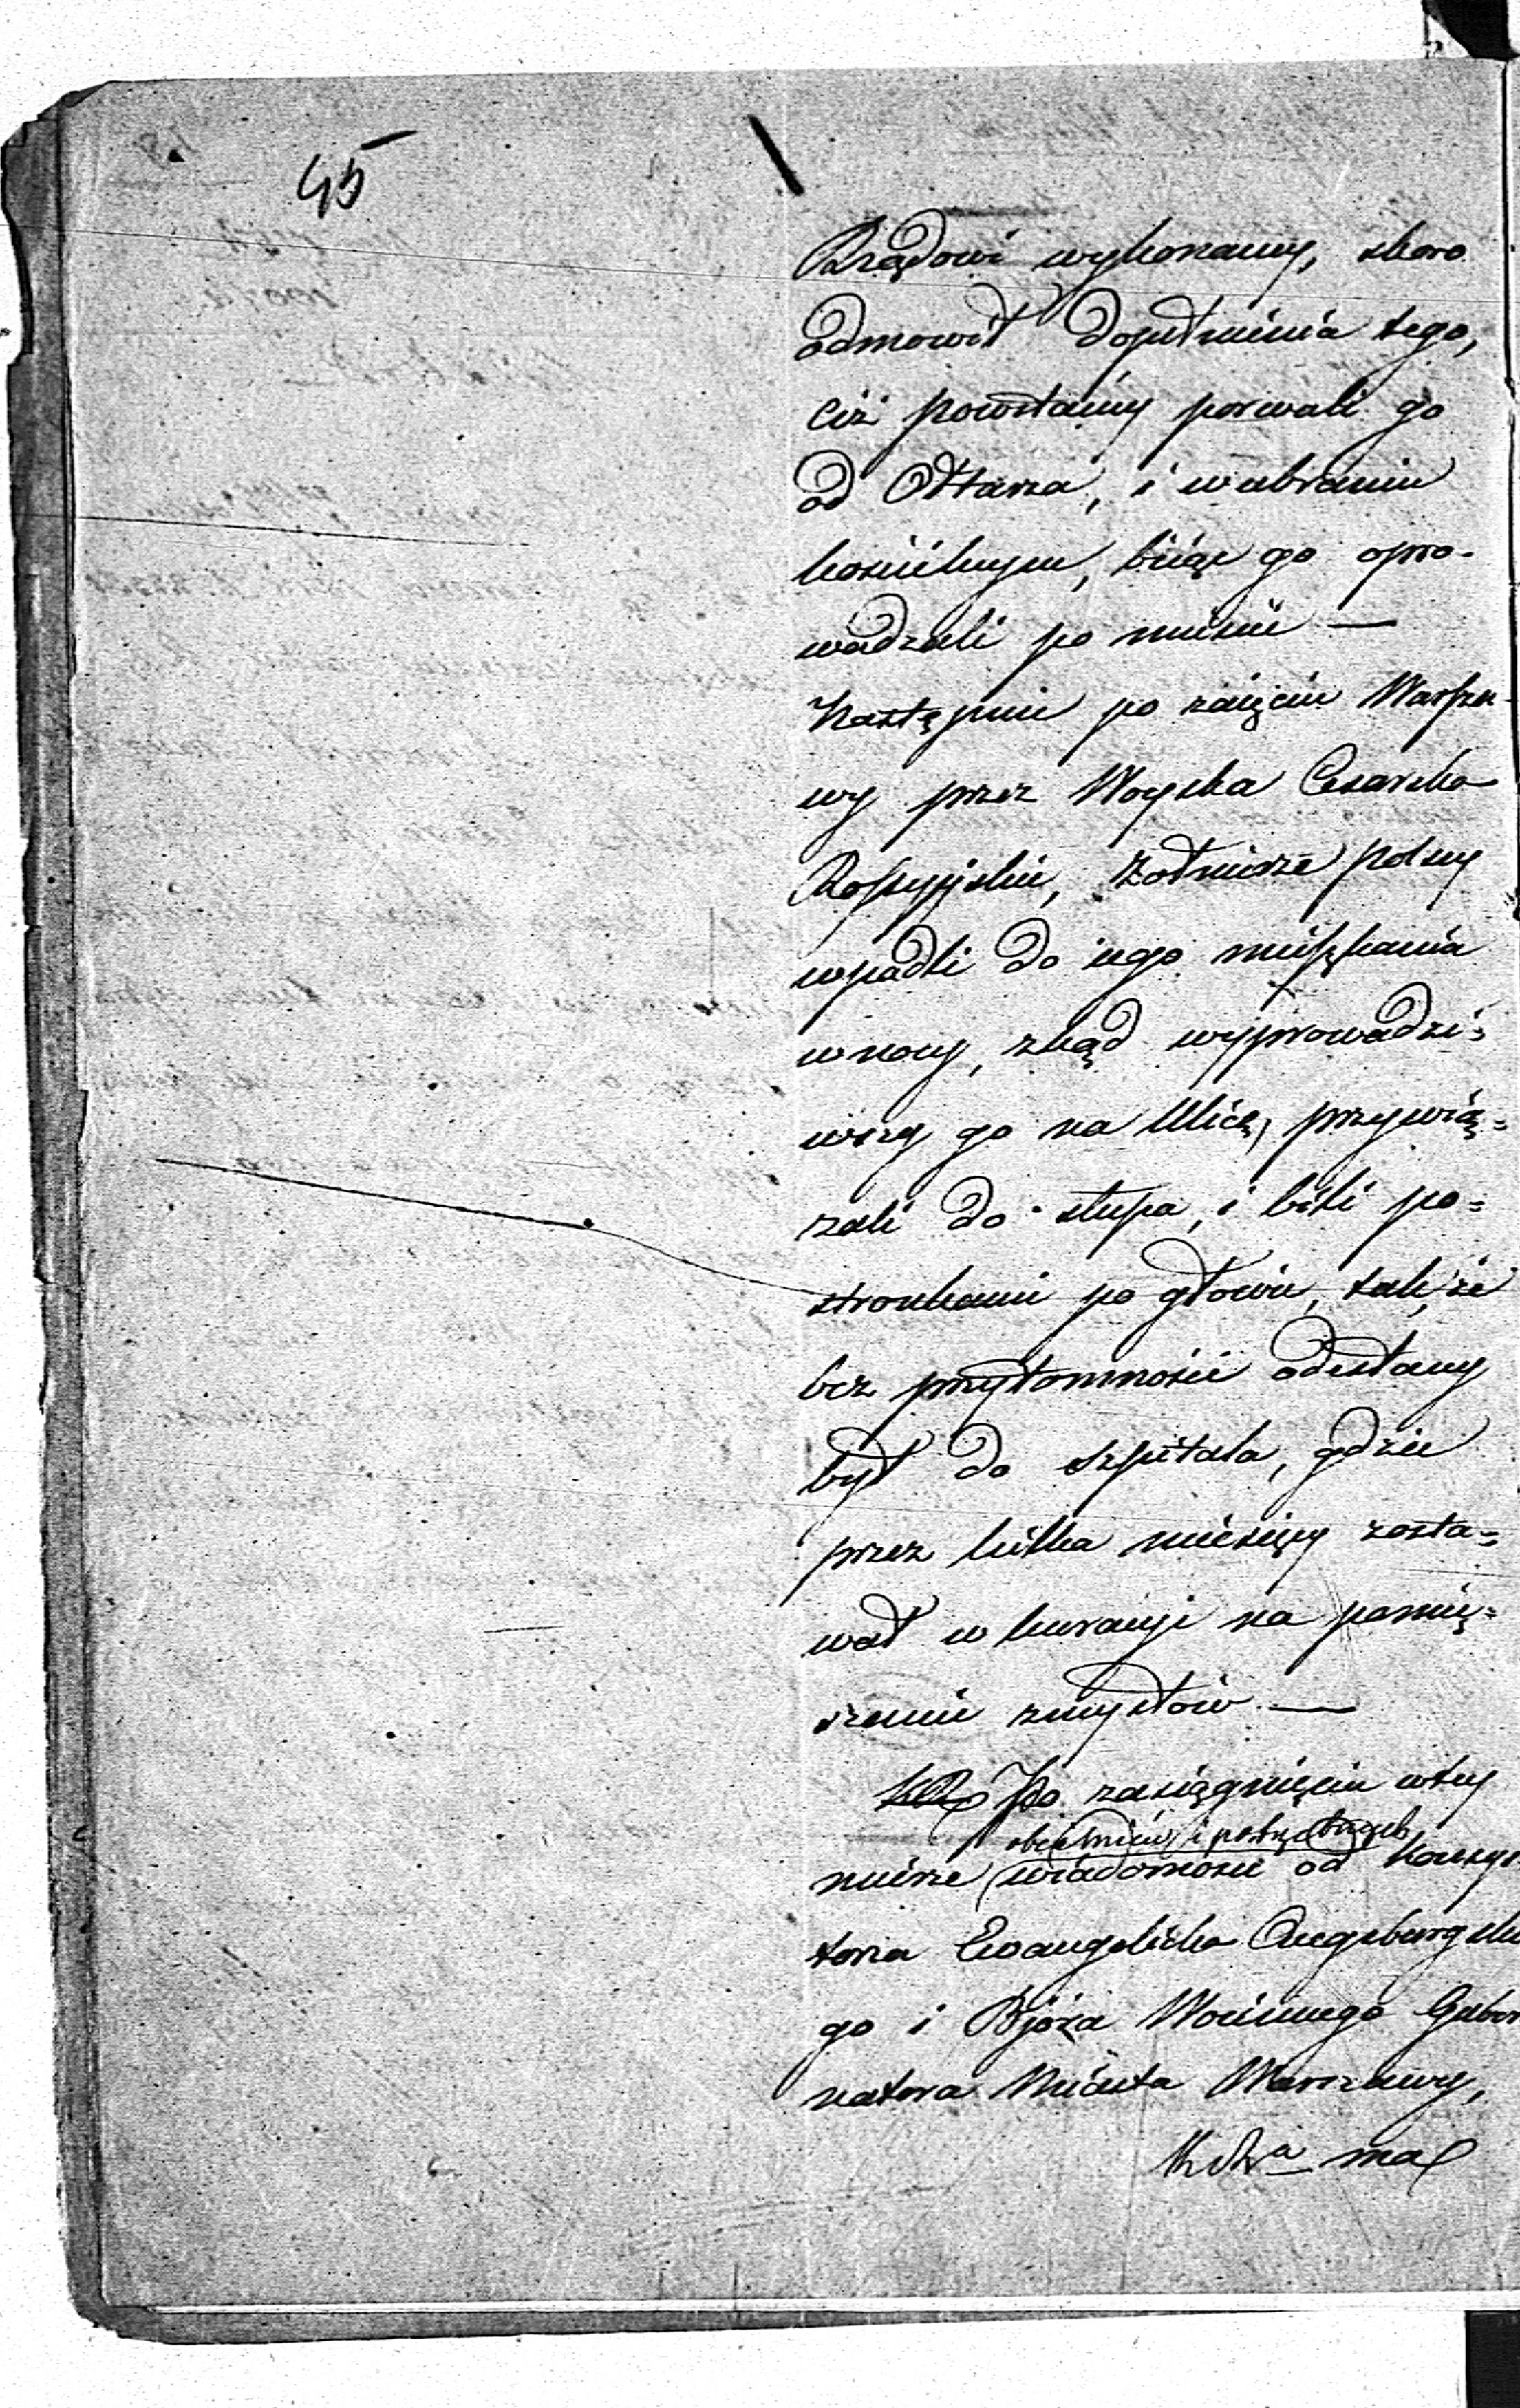 45
Rządowi wykonany, skoro
odmowił dopełnienia tego,
ciż powstańcy porwali go
od Ołtarza, i w ubraniu
kościelnym, biiąc go opro-
wadzali po mieście —
Następnie po zaięciu Warsza-
wy przez Woyska Cesarsko
Rossyyskie, żołnierze polscy
wpadli do iego mieszkania
w nocy, zkąd wyprowadzi-
wszy go na Ulicę, przywią=
zali do słupa, i bili po=
stronkami po głowie, tak, że
bez przytomności odesłany
był do szpitala, gdzie
przez kilka miesięcy zosta=
wał w kuracyi na pomię=
szenie zmysłów —
Po zasięgnięciu w tey
obecnie
mierze wiadomości od Konsys-
torza Ewangelicko Augsburgskie
go i Wojennego Guber
natora Miasta Warszawy,
ma